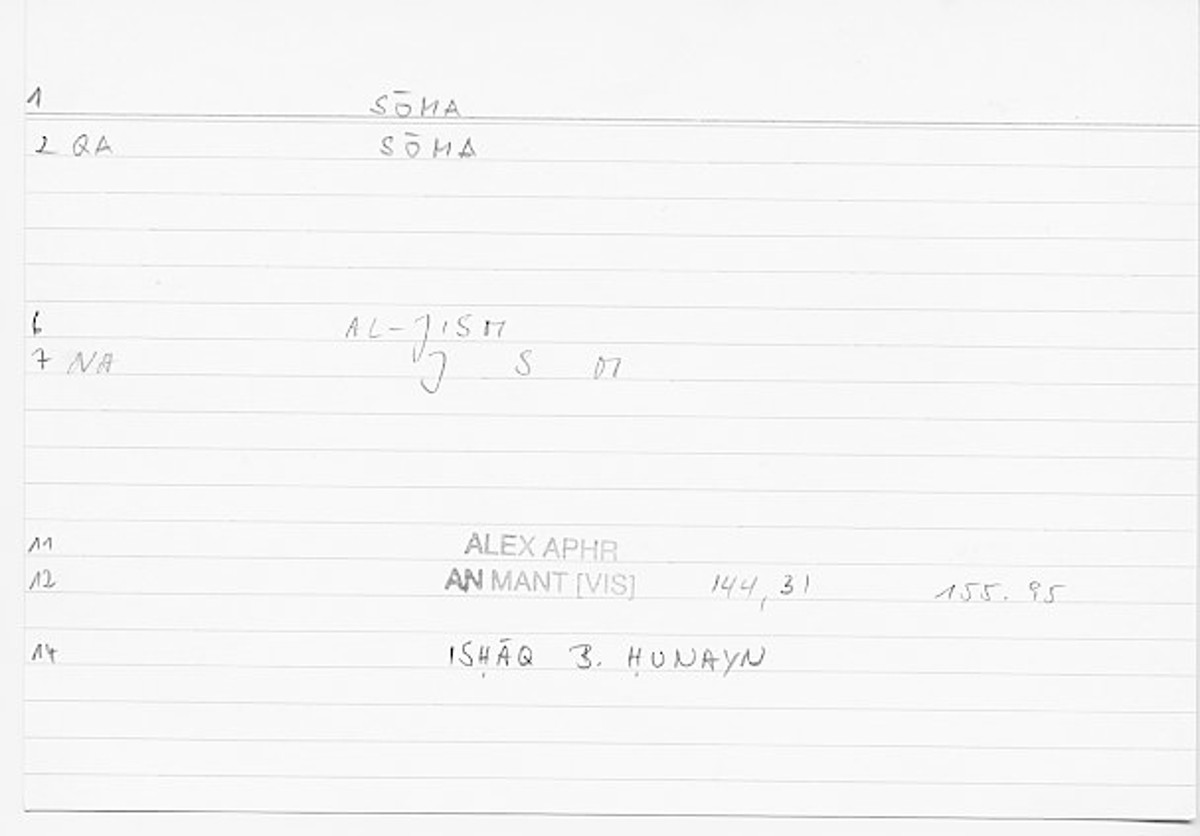 1 SŌMA
2 QA SŌMA
6 AL-JISM
7 NA J S M
11 ALEX APHR
12 AN MANT [VIS] 144,31 155.95
14 ISḤĀQ B. ḤUNAYN